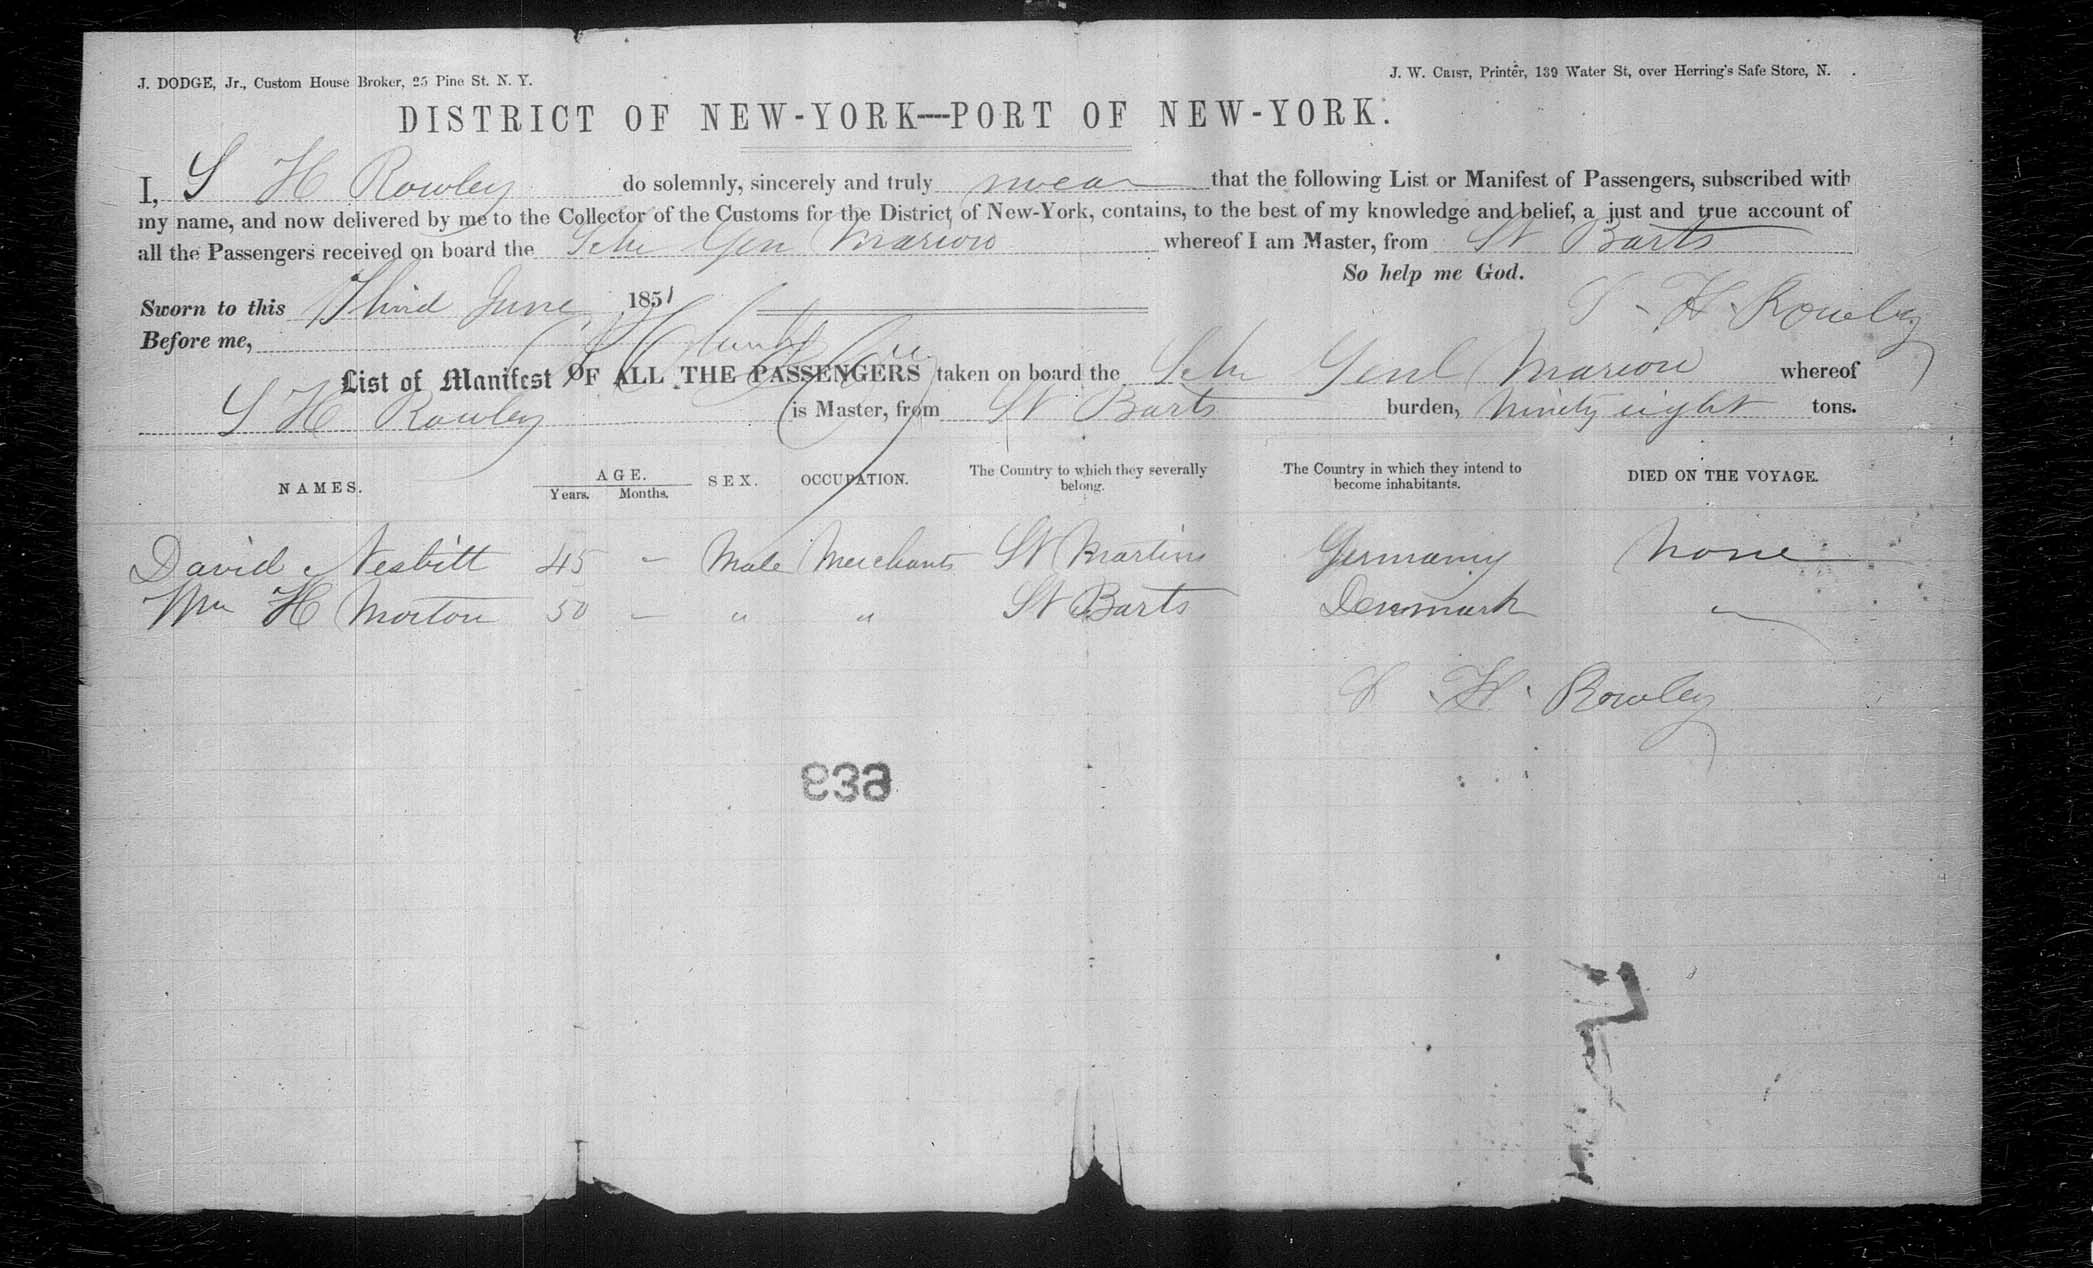 J. DODGE, Jr., Custom House Broker, 25 Pine St. N. Y.
J. W. CRIST, Printer, 139 Water St, over Herring's Safe Store, N.
DISTRICT OF NEW-YORK—PORT OF NEW-YORK.
I, S H Rowley do solemnly, sincerely and truly swear that the following List or Manifest of Passengers, subscribed with
my name, and now delivered by me to the Collector of the Customs for the District of New-York, contains, to the best of my knowledge and belief, a just and true account of
all the Passengers received on board the Schr Gen Marion whereof I am Master, from St Barts
So help me God.
Sworn to this Third June 1851
S. H. Rowley
Before me,
List of Manifest OF ALL THE PASSENGERS taken on board the Schr Genl Marion whereof
S H Rowley is Master, from St Barts burden, Ninety eight tons.
NAMES. AGE. Years. Months. SEX. OCCUPATION. The Country to which they severally belong. The Country in which they intend to become inhabitants. DIED ON THE VOYAGE.
David Nesbitt 45 - Male Merchants St Martins Germany None
Wm H Morton 50 - " " St Barts Denmark "
S. H. Rowley
639